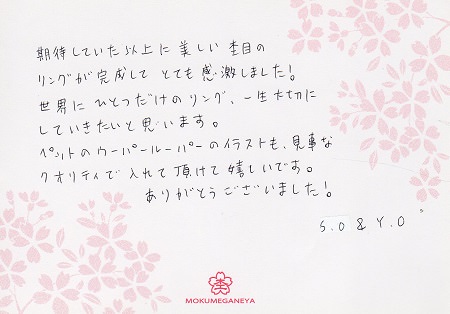 期待していた以上に美しい杢目の
リングが完成して とても感激しました!
世界にひとつだけのリング、一生大切に
していきたいと思います。
ペットのウーパールーパーのイラストも、見事な
クオリティで入れて頂けて嬉しいです。
ありがとうございました!
S.O & Y.O
杢
MOKUMEGANEYA